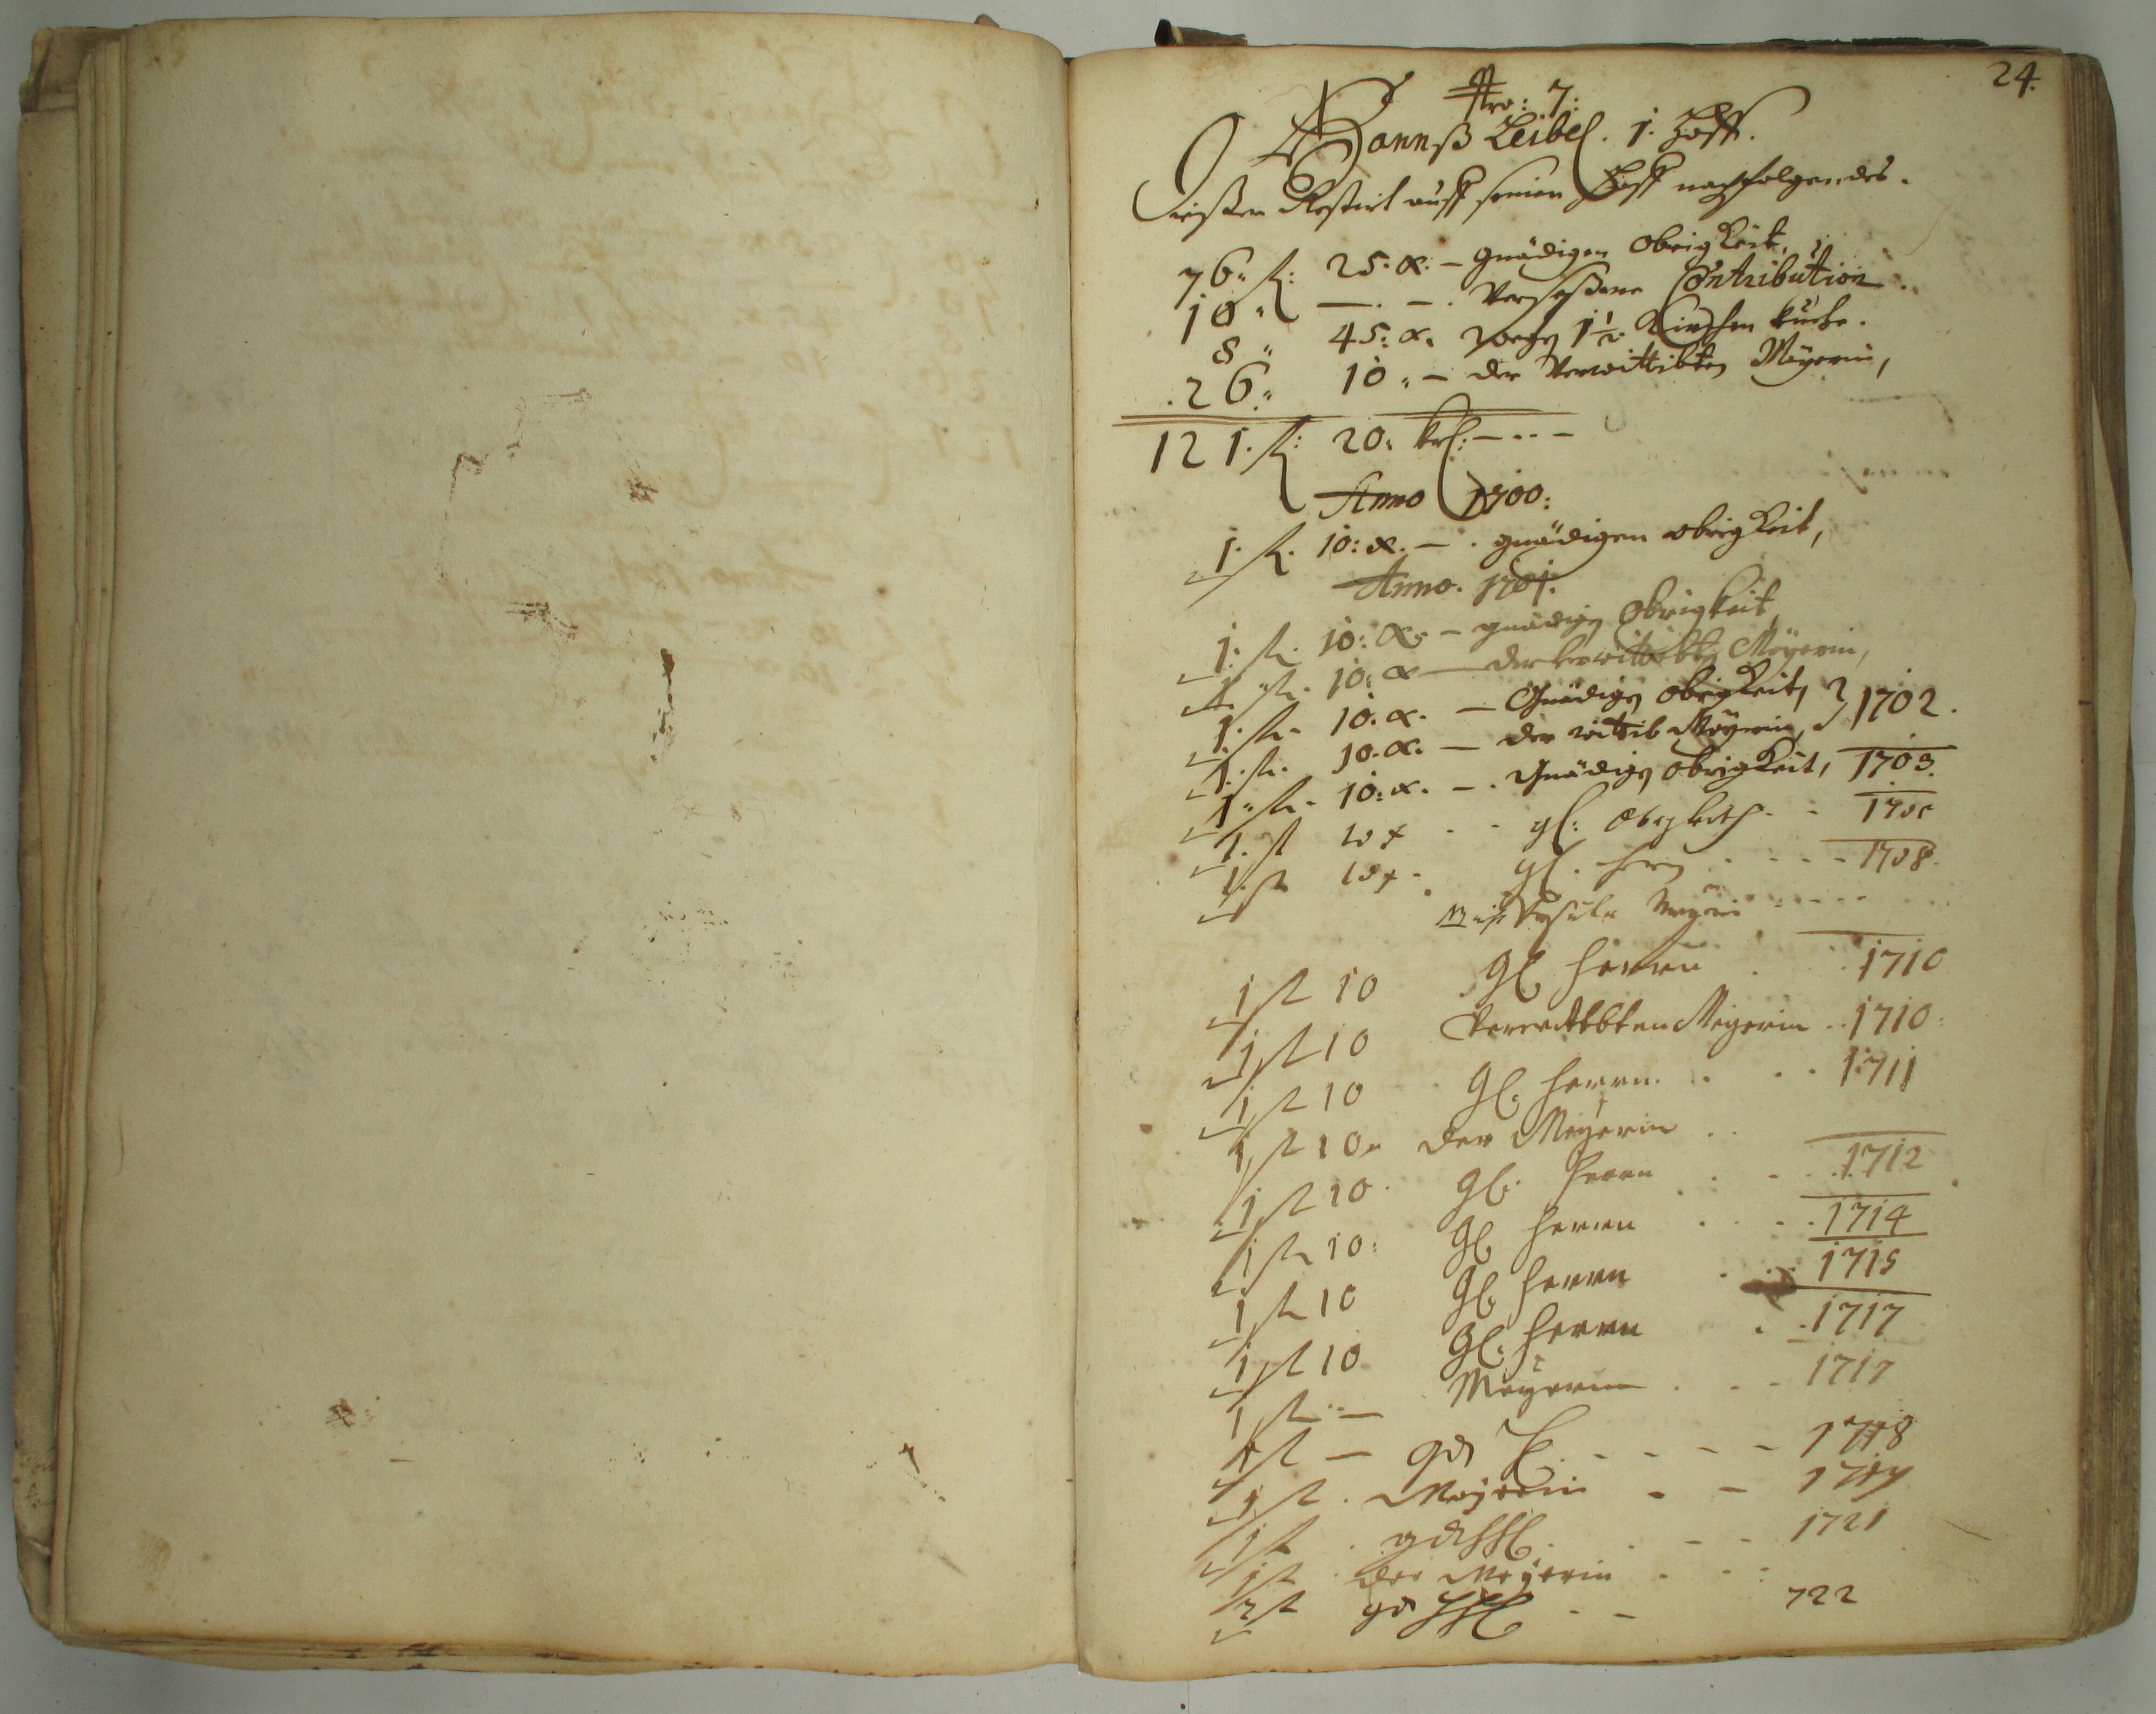 24.
Nro: 7:
Hannß Leibel. 1. Hoff.
Restirt auff seinen Hoff nachfolgendes.
76" fl: 25. x. – gnädigen Obrigkeit,
10" — . – . Versessene Contribution.
8" 45: x. 1½.
26" 10" – der Verwittibten Mayerin,
121. fl: 20: krl: – . . –
Anno 1700:
1. fl. 10: x. – . gnädigen obrigkeit,
Anno. 1701.
1: fl. 10: x. – gnädigen Obrigkeit
1 fl. 10: x — der verwittibten Mayerin,
1. fl. 10. x. – Gnädigen obrigkeit, 1702.
1. fl. 10. x. – der wittib Mayerin,
1" fl. 10: x. – . Gnädigen obrigkeit, 1703.
1. fl 10 x - - gl: Obrigkeith - -
1. fl 10 x - gl. herrn - - - - 1708.
1 fl 10 Gl herrn . . 1710
1 fl 10 Verwittibten Mayerin . . 1710:
1 fl 10 Gl. herrn. . . . 1711
1 fl 10. der Mayerin . .
1 fl 10. Gl. herrn . . . 1712
1 fl 10: Gl herrn . . . 1714
1 fl 10 Gl. herrn . . . 1715
1 fl 10 Gl. herrn . . 1717
1 fl. — Mayerin . . - 1717
1 fl — - - - - 1718
1 fl . Mayerin - –
1 fl . - - 1721
1 fl . der Mayerin - - :
2 fl - – 722